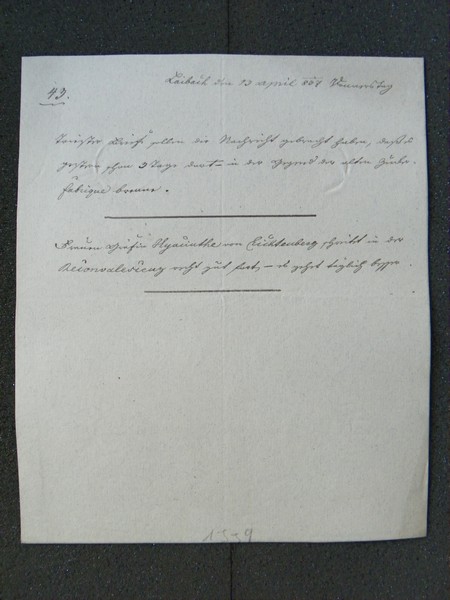 Laibach den 13 april 809 Donnerstag
43.
Triester Briefe sollen die Nachricht gebracht haben, daß es
gestern schon 3 Tage dort in der Gegend der alten Zucker-
fabrique brenne.
Frauen Gräfin Hyacinthe von Lichtenberg schreitet in der
Reconvalescenz recht gut fort, es gehet täglich besser.
1539